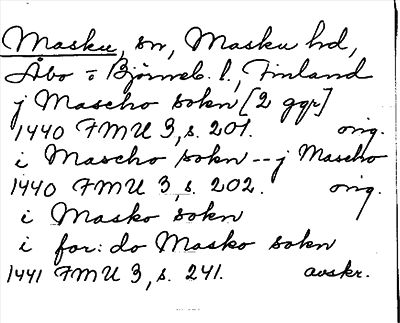 Masku, sn, Masku hd,
Åbo o Björneb. l., Finland
j Mascho sokn [2 ggr]
1440 FMU 3, s. 201. orig.
i Mascho sokn -- j Mascho
1440 FMU 3, s. 202. orig.
i Masko sokn
i for: do Masko sokn
1441 FMU 3, s. 241. avskr.